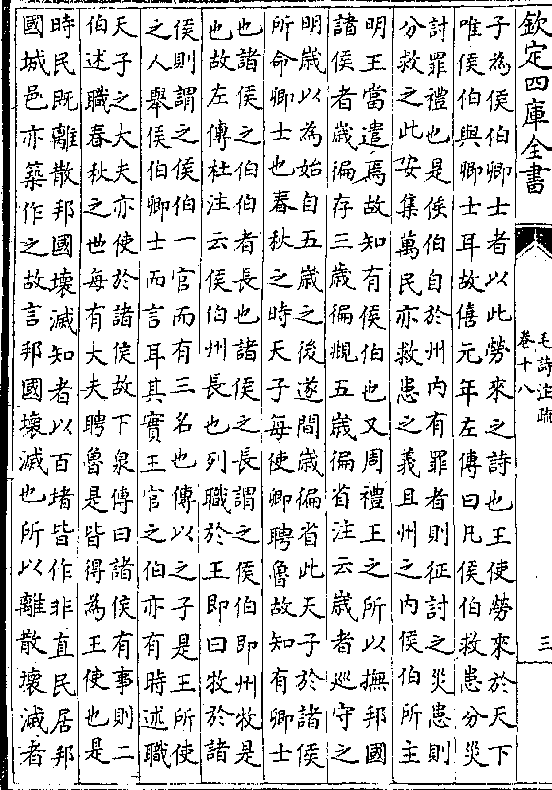 欽定四庫全書
毛詩注疏
卷十八
三
子為侯伯卿士者以此勞來之詩也王使勞來於天下
唯侯伯與卿士耳故僖元年左傳曰凡侯伯救患分災
討罪禮也是侯伯自於州内有罪者則征討之災患則
分救之此安集萬民亦救患之義且州之内侯伯所主
明王當遣焉故知有侯伯也又周禮王之所以撫邦國
諸侯者歲徧存三歲徧覜五歲徧省注云歲者廵守之
明歲以為始自五歲之後遂間歲徧省此天子於諸侯
所命卿士也春秋之時天子每使卿聘魯故知有卿士
也諸侯之伯伯者長也諸侯之長謂之侯伯即州牧是
也故左傳杜注云侯伯州長也列職於王即曰牧於諸
侯則謂之侯伯一官而有三名也傳以之子是王所使
之人舉侯伯卿士而言耳其實王官之伯亦有時述職
天子之大夫亦使於諸侯故下泉傳曰諸侯有事則二
伯述職春秋之世每有大夫聘魯是皆得為王使也是
時民既離散邦國壞滅知者以百堵皆作非直民居邦
國城邑亦築作之故言邦國壞滅也所以離散壞滅者